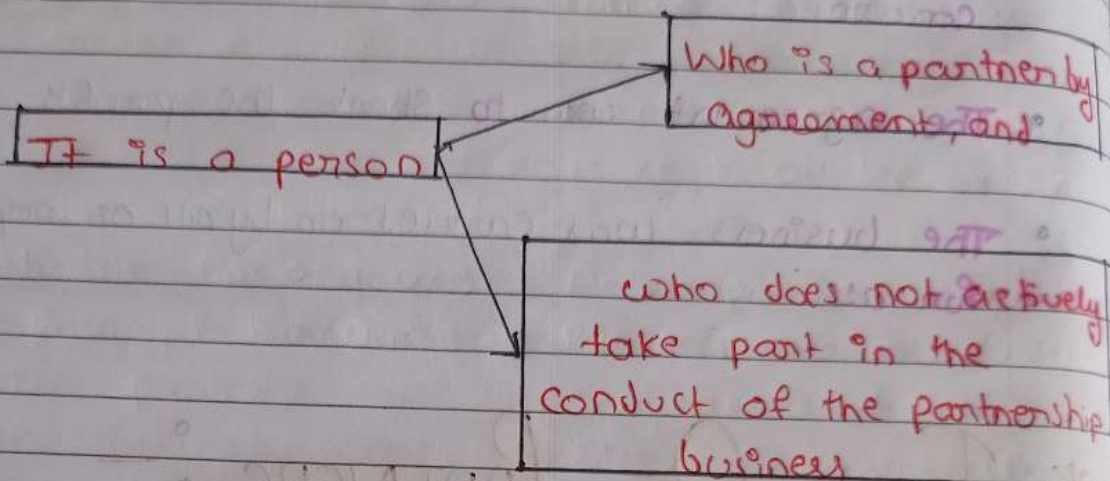 It is a person
Who is a partner by
agreament, and
who does not actively
take part in the
conduct of the partnership
business